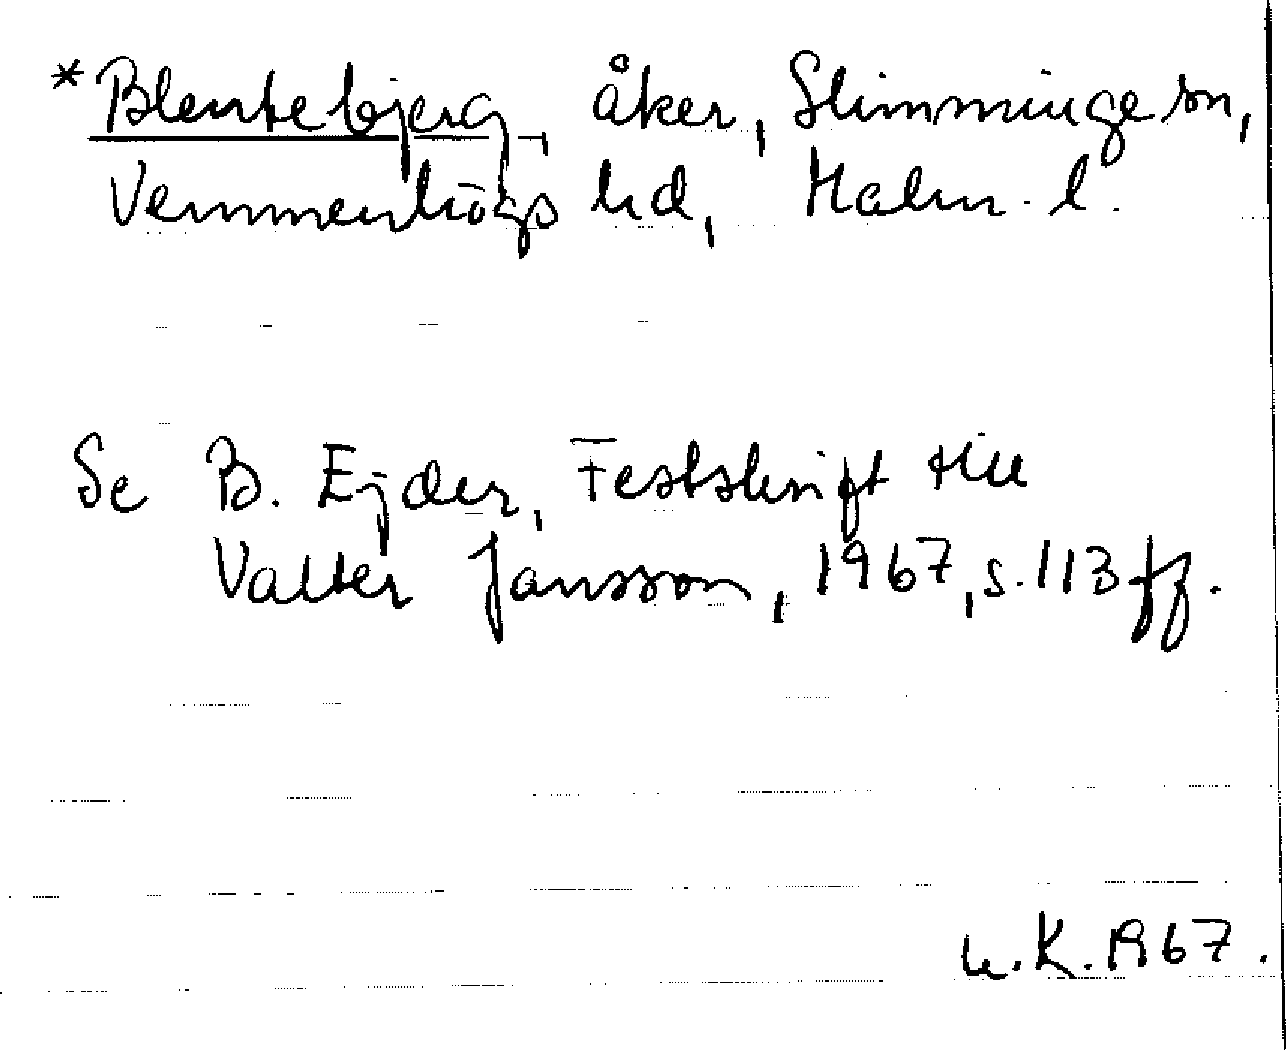 *Blentebjerg, åker, Slimminge sn,
Vemmenhögs hd, Malm. l.
Se B. Ejder, Festskrift till
Valter Jansson, 1967, s. 113 ff.
K. 1967.